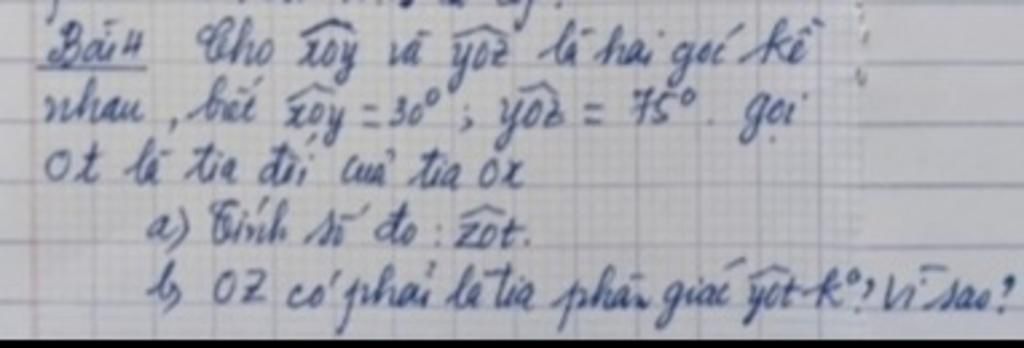 Bài 4 Cho xOy và yOz là hai góc kề
nhau, biết xOy = 30°; yOz = 75°. gọi
Ot là tia đối của tia Ox
a) Tính số đo: zOt.
b) OZ có phải là tia phân giác yOt k°? Vì sao?